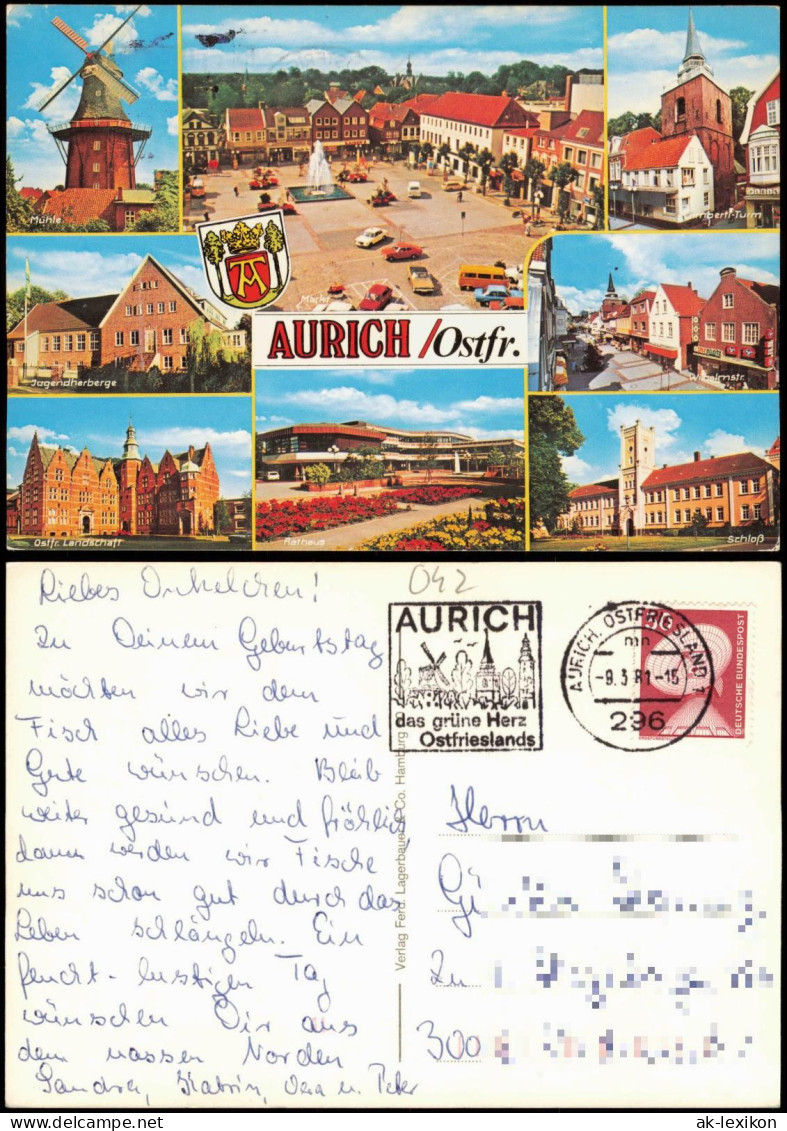 Mühle
Markt
Lamberti-Turm
Jugendherberge
AURICH /Ostfr.
Wilhelmstr.
Ostfr. Landschaft
Rathaus
Schloß
Liebes Onkelchen!
Zu Deinem Geburtstag
möchten wir dem
Fisch alles Liebe und
Gute wünschen. Bleib
weiter gesund und fröhlich,
dann werden wir Fische
uns schon gut durch das
Leben schlängeln. Ein
feucht-lustigen Tag
wünschen Dir aus
dem nassen Norden
Sandra, Katrin, Vera u. Peter
042
AURICH
das grüne Herz
Ostfrieslands
AURICH, OSTFRIESLAND 1
mn
-9.3.81-15
296
DEUTSCHE BUNDESPOST
Verlag Ferd. Lagerbauer & Co. Hamburg
Herrn
Zu
300
ak-lexikon